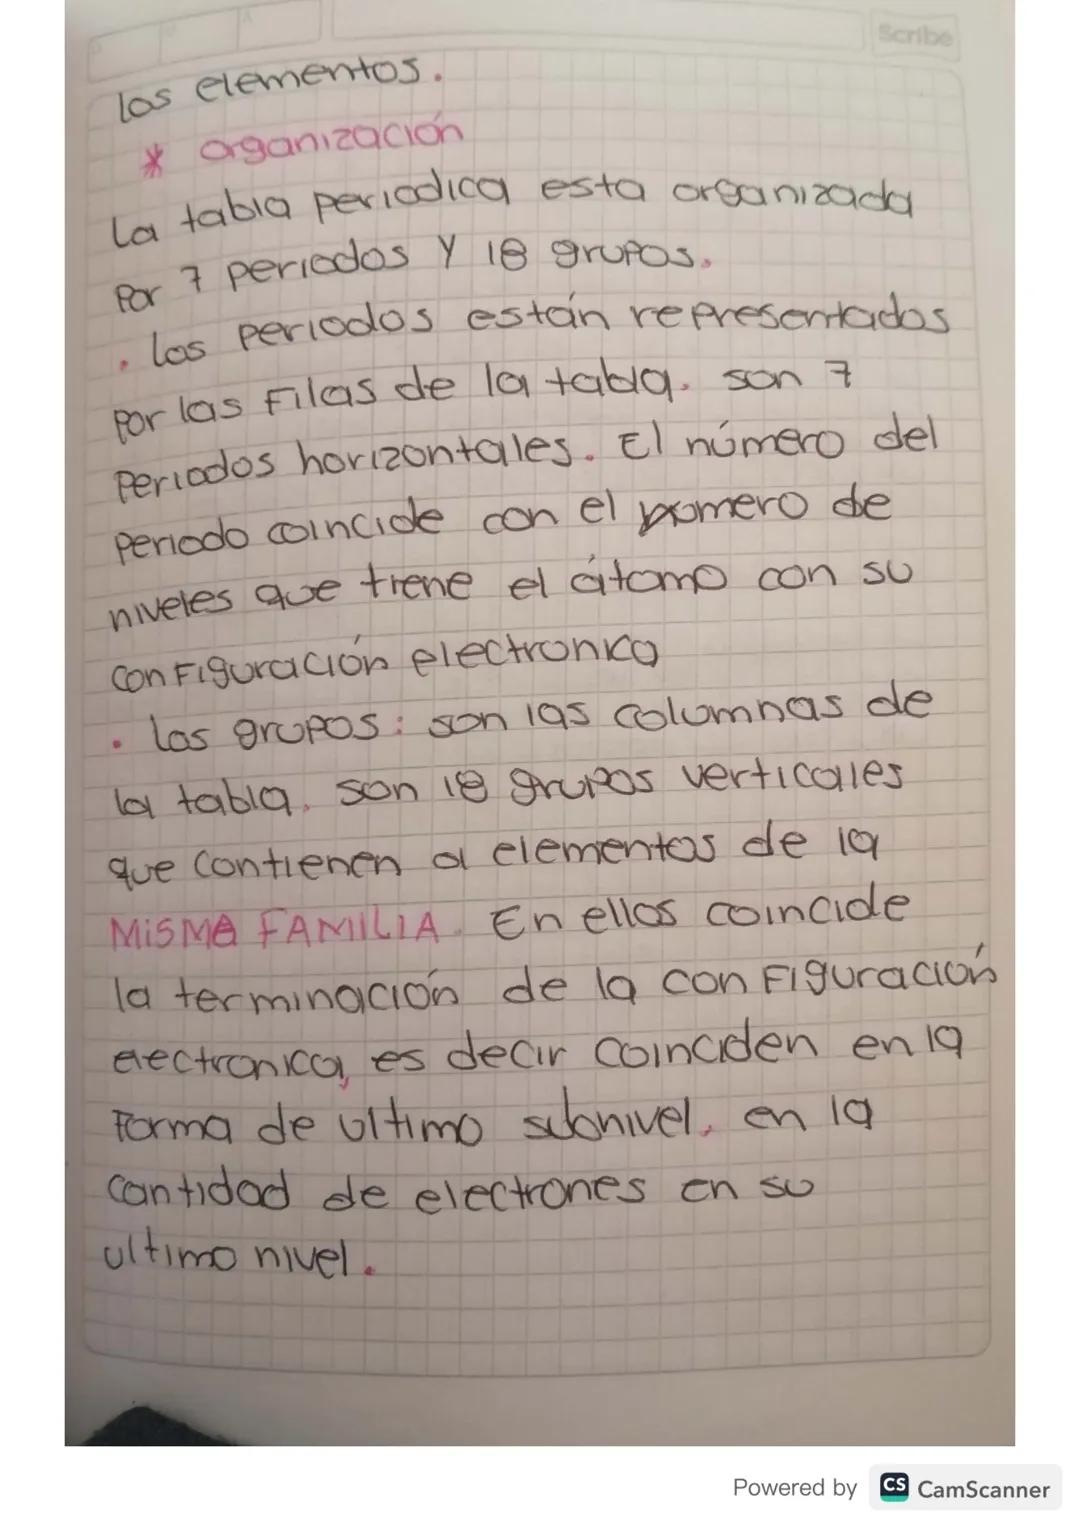 Scribe
los elementos.
* organización
La tabla periodica esta organizada
Por 7 periodos y 18 grupos.
. los periodos están representados
por las Filas de la tabla. son 7
Periodos horizontales. El número del
periodo coincide con el numero de
niveles que tiene el átomo con su
configuración electronica
. los grupos: son las columnas de
la tabla. son 18 grupos verticales
que contienen a elementos de la
MISMA FAMILIA. En ellos coincide
la terminación de la configuración
electronica, es decir coinciden en la
Forma de ultimo subnivel. en la
cantidad de electrones en su
ultimo nivel.
Powered by CS CamScanner